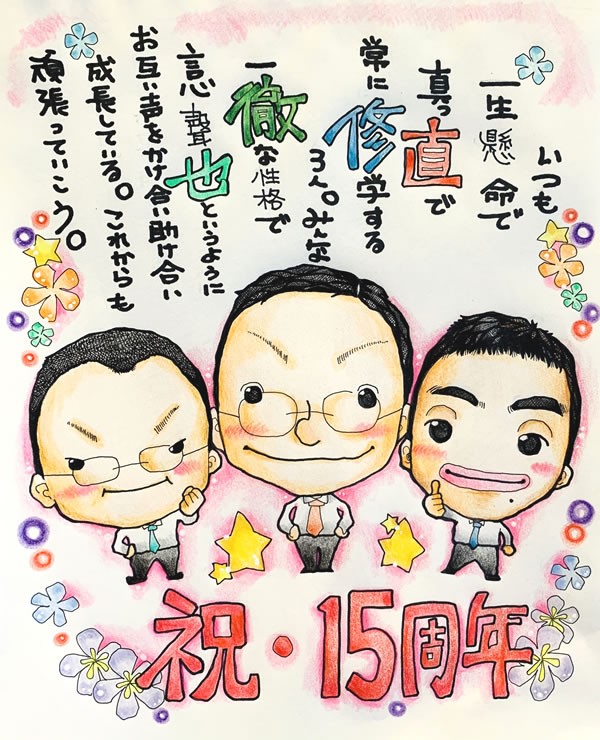 いつも
一生懸命で
真っ直で
常に修学する
3人。みんな
一徹な性格で
言心聲也というように
お互い声をかけ合い助け合い
成長している。これからも
頑張っていこう。
祝・15周年